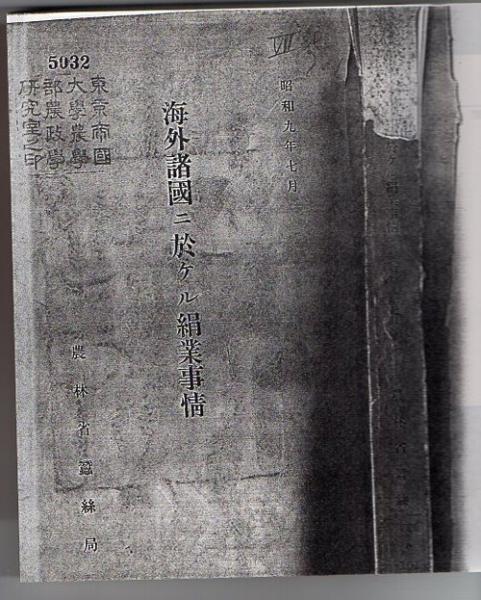 昭和九年七月
海外諸國ニ於ケル絹業事情
農林省蠶絲局
5032
東京帝國
大學農學
部農政學
研究室之印
VII